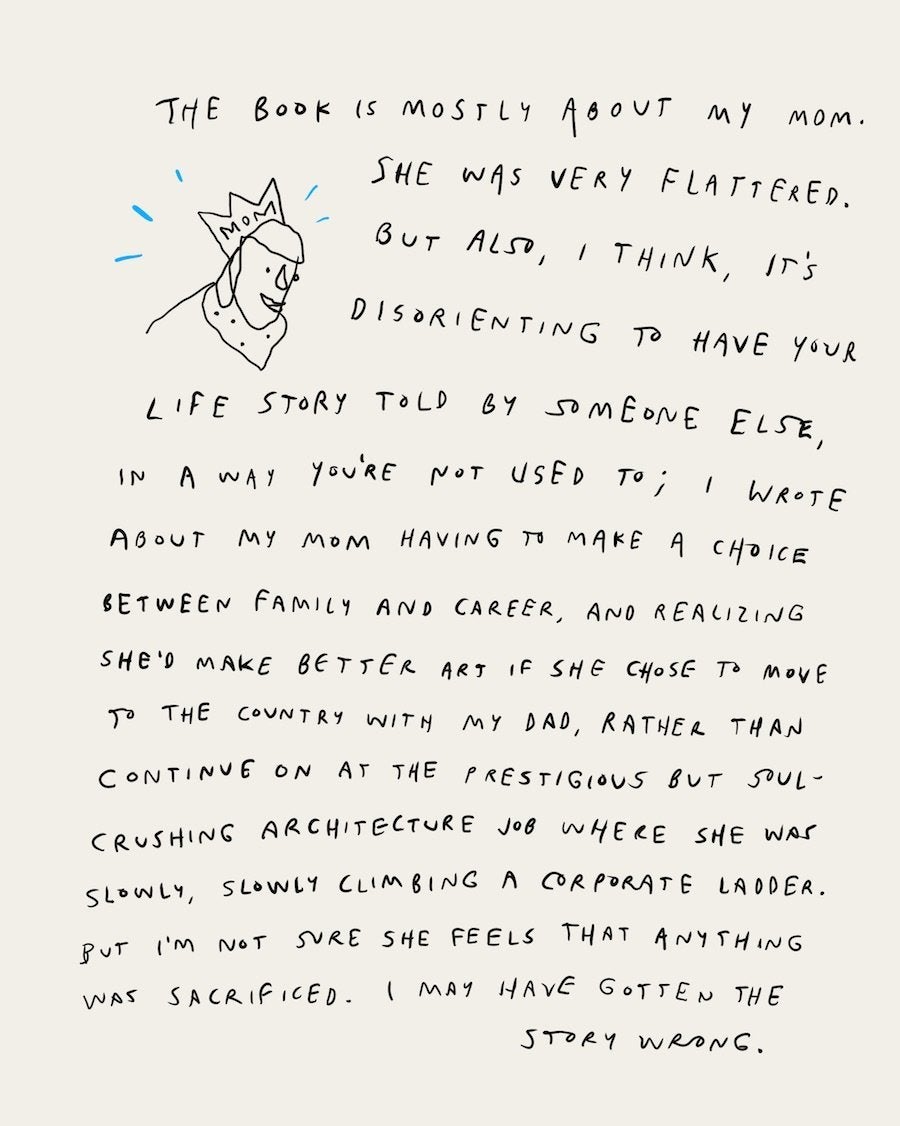 THE BOOK IS MOSTLY ABOUT MY MOM.
SHE WAS VERY FLATTERED.
MOM
BUT ALSO, I THINK, IT'S
DISORIENTING TO HAVE YOUR
LIFE STORY TOLD BY SOMEONE ELSE,
IN A WAY YOU'RE NOT USED TO; I WROTE
ABOUT MY MOM HAVING TO MAKE A CHOICE
BETWEEN FAMILY AND CAREER, AND REALIZING
SHE'D MAKE BETTER ART IF SHE CHOSE TO MOVE
TO THE COUNTRY WITH MY DAD, RATHER THAN
CONTINUE ON AT THE PRESTIGIOUS BUT SOUL-
CRUSHING ARCHITECTURE JOB WHERE SHE WAS
SLOWLY, SLOWLY CLIMBING A CORPORATE LADDER.
BUT I'M NOT SURE SHE FEELS THAT ANYTHING
WAS SACRIFICED. I MAY HAVE GOTTEN THE
STORY WRONG.